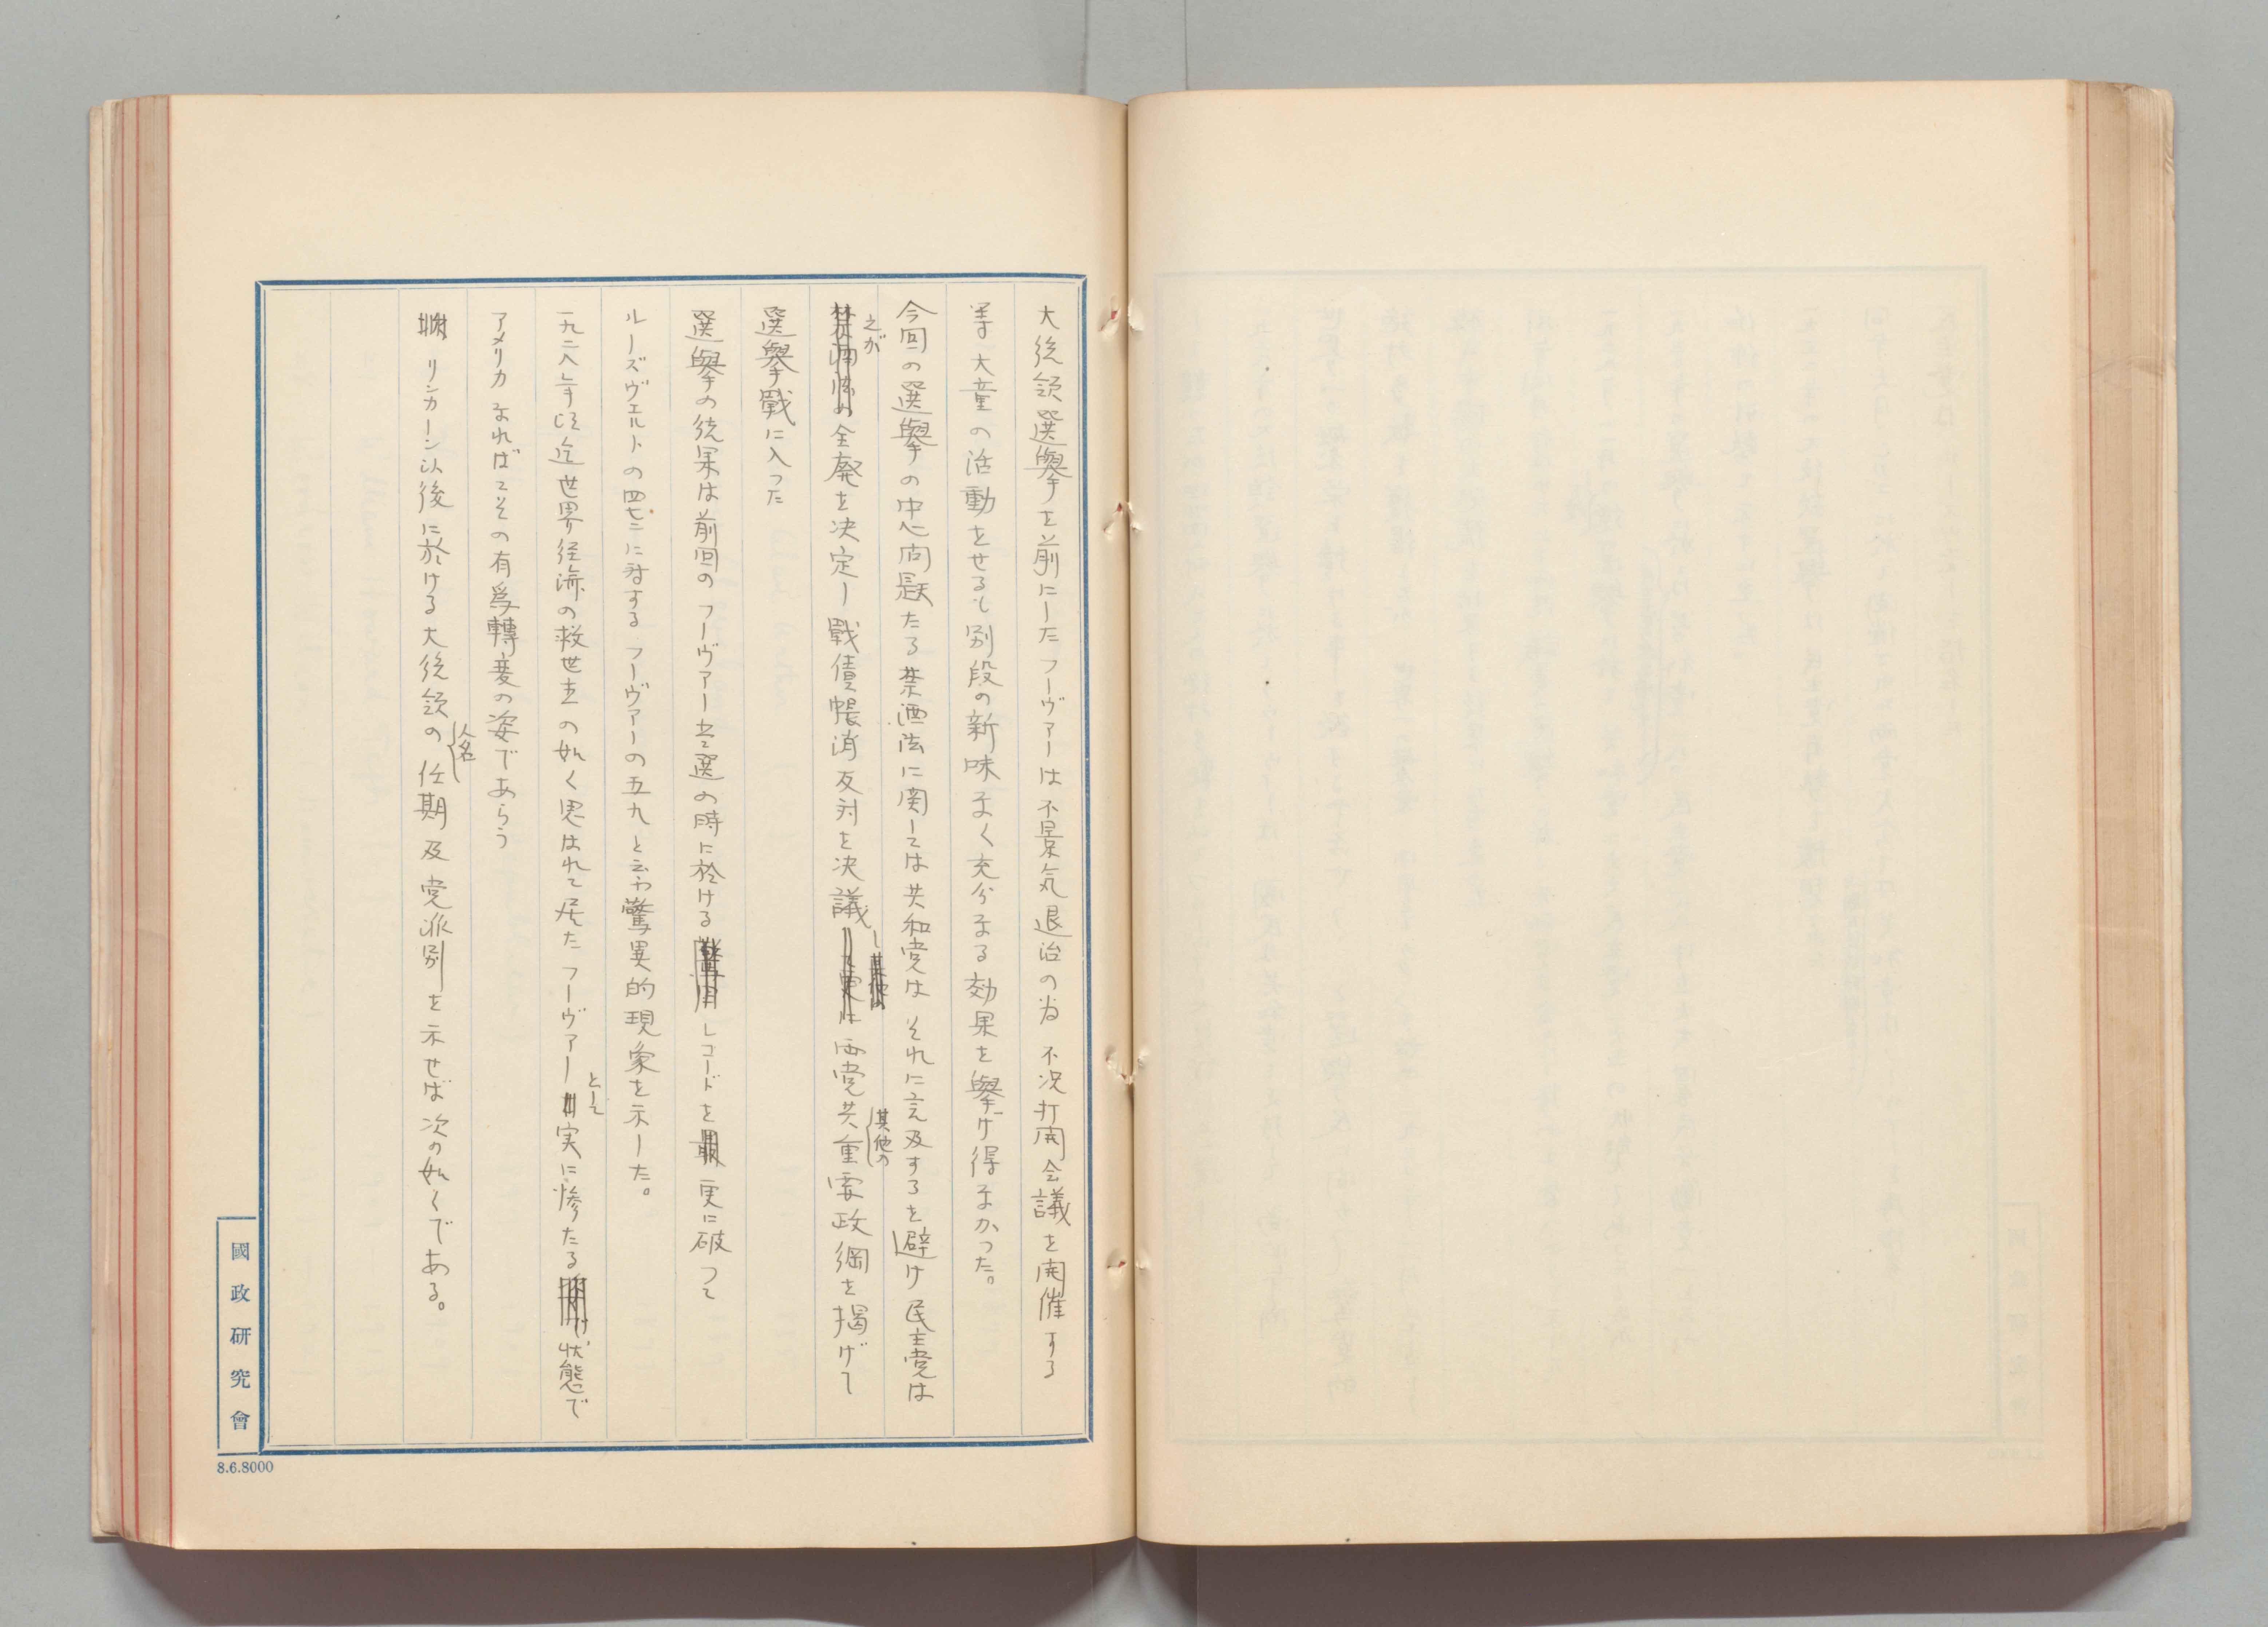 大統領選擧を前にしたフーヴァーは不景気退治の为不況打開会議を開催する
等大童の活動をせるも別段の新味なく充分なる効果を擧げ得なかった。
今回の選擧の中心问題たる禁酒法に関しては共和党はそれに言及するを避け民主党は
之が全廃を決定し戰債帳消反対を決議し両党共其他の重要政綱を揭げて
選擧戰に入った
選擧の結果は前回のフーヴァー当選の時に於けるレコードを更に破って
ルーズヴェルトの四七二に対するフーヴァーの五九と云ふ驚異的現象を示した。
一九二八年頃迄世界経済の救世主の如く思はれて居たフーヴァーとして実に惨たる状態で
アメリカなればこその有爲轉変の姿であらう
リンカーン以後に於ける大統領の人名任期及党派別を示せば次の如くである。
國政研究會
8.6.8000